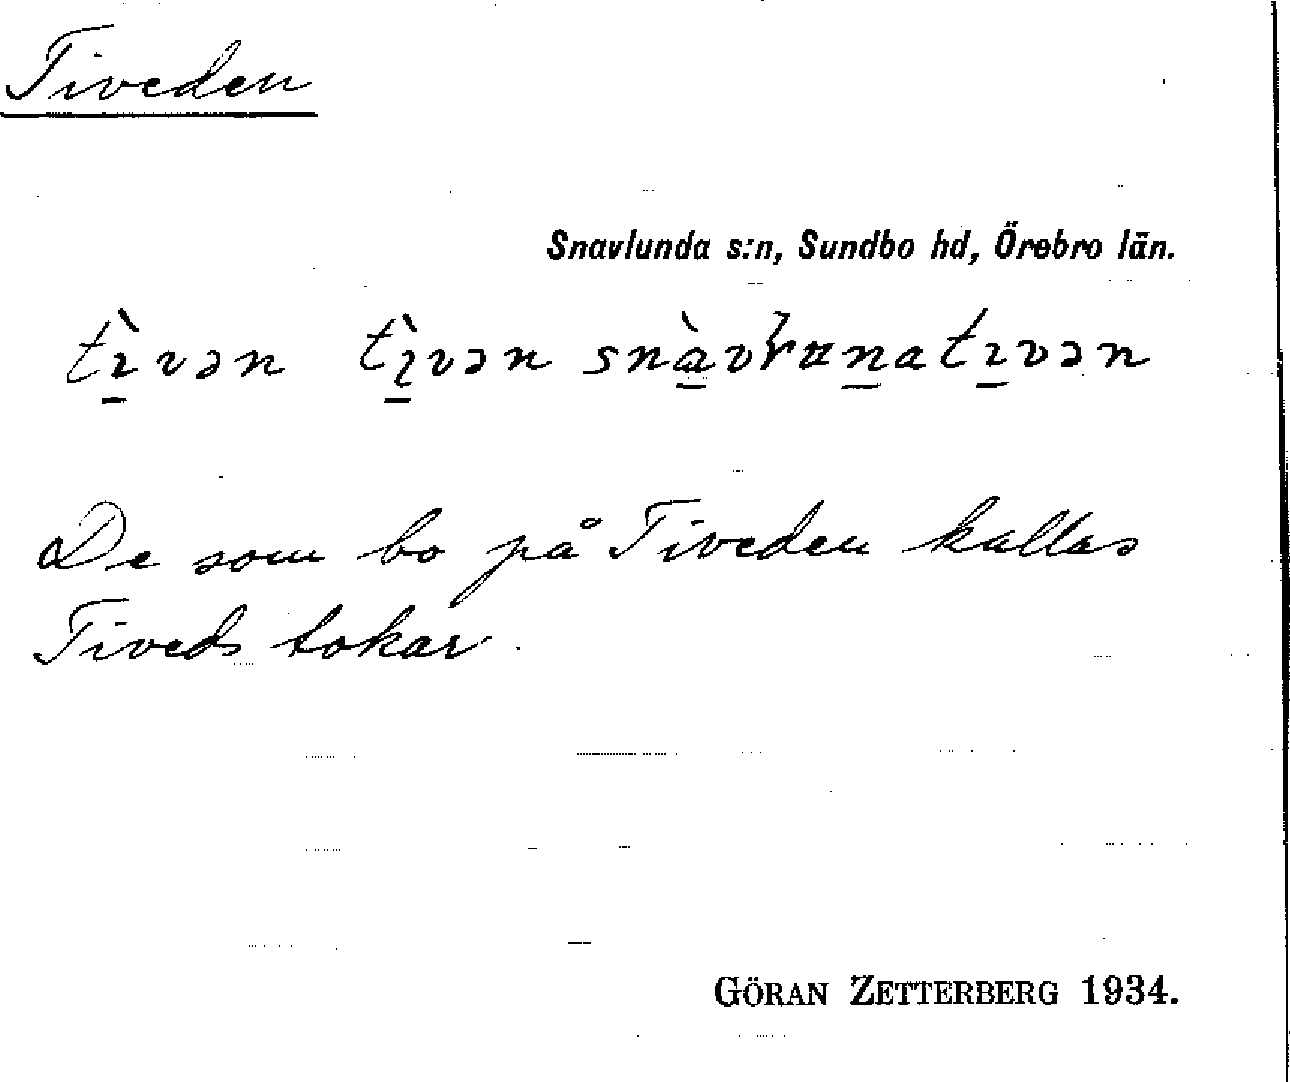 Tiveden
Snavlunda s:n, Sundbo hd, Örebro län.
De som bo på Tiveden kallas
Tiveds tokar.
GÖRAN ZETTERBERG 1934.